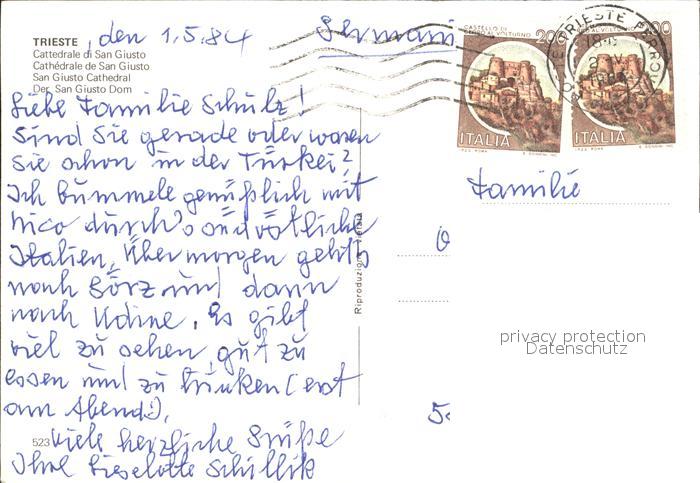 TRIESTE, den 1.5.84
Cattedrale di San Giusto
Cathédrale de San Giusto
San Giusto Cathedral
Der San Giusto Dom
Liebe Familie Schulz!
Sind Sie gerade oder waren
Sie schon in der Türkei?
Ich bummele genüßlich mit
Nico durch's südöstliche
Italien, Übermorgen geht's
nach Görz und dann
nach Udine. Es gibt
viel zu sehen, gut zu
essen und zu trinken (erst
am Abend!),
523 Viele herzliche Grüße
Ihre Lieselotte
Riproduzione vietata
Germani
CASTELLO DI
CERRO AL VOLTURNO
200
ITALIA
200
ITALIA
TRIESTE
Familie
privacy protection
Datenschutz
5